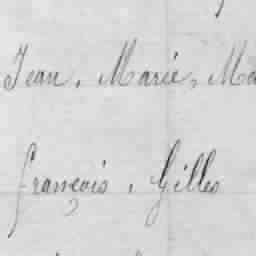 Jean, Marie, Ma
françois, Gilles